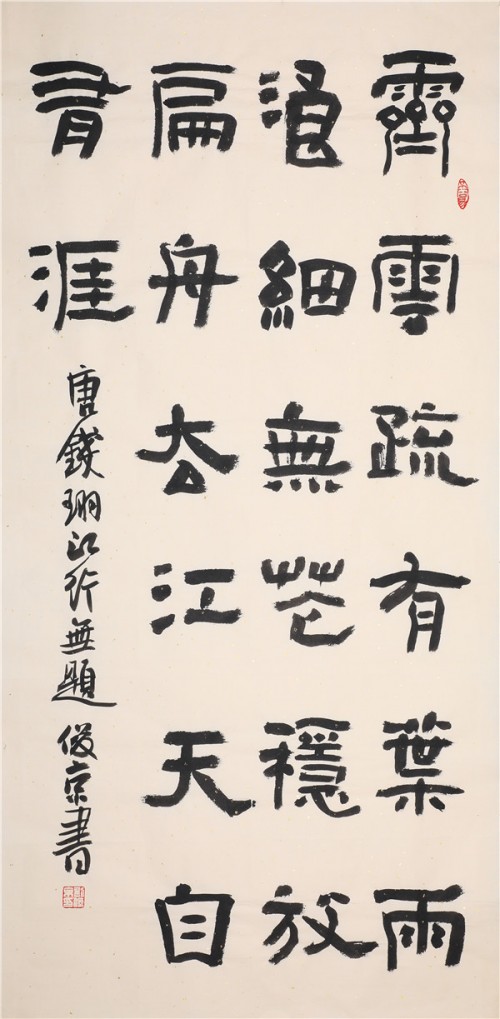 霽雲疏有葉雨
浪細無花穩放
扁舟去江天自
有涯
唐錢珝江行無題 俊京書